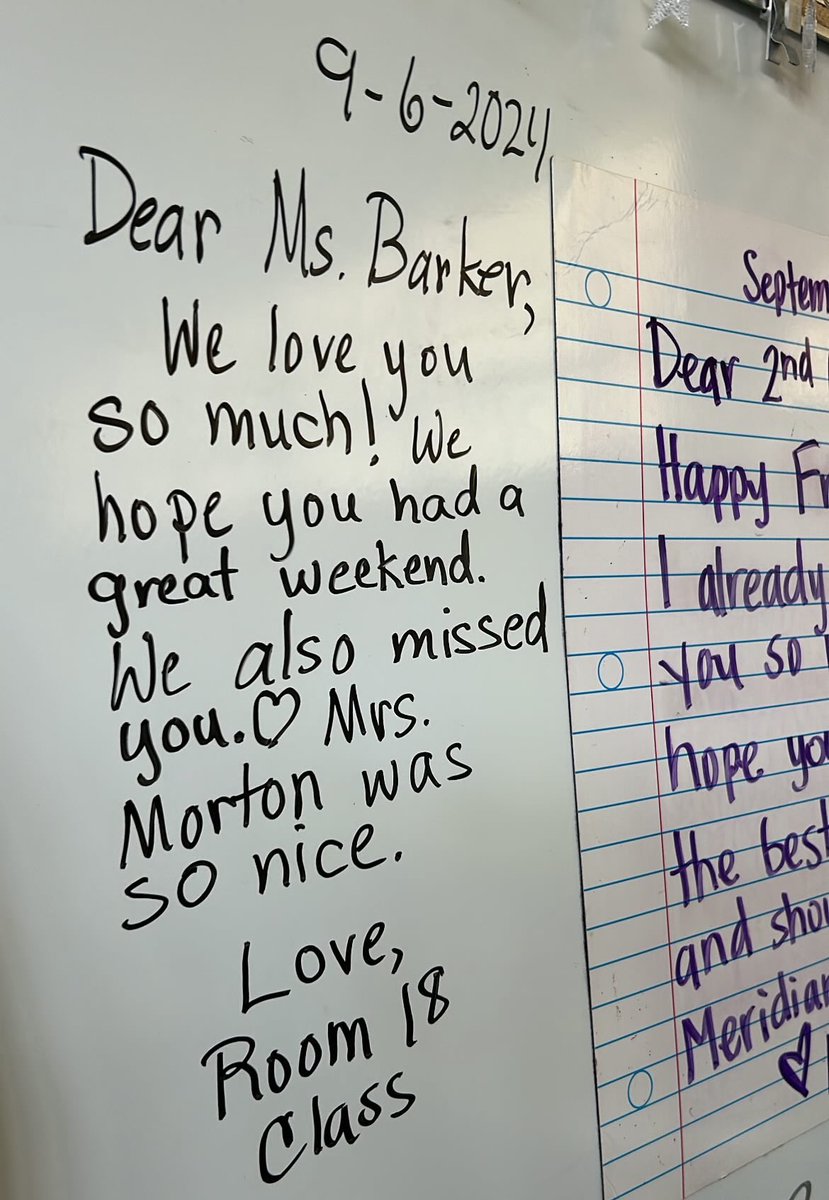 9-6-2024
Dear Ms. Barker,
We love you
so much! We
hope you had a
great weekend.
We also missed
you.♡ Mrs.
Morton was
so nice.
Love,
Room 18
Class
Dear 2nd
Happy
I already
you so
hope
the best
and